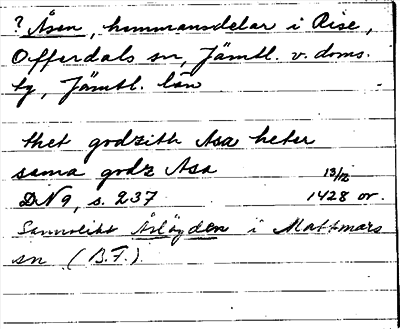 ? Åsen, hemmansdelar i Rise,
Offerdals sn, Jämtl. v. doms.
tg, Jämtl. län
thet godzith Asa heter
sama godz Asa 13/12
DN 9, s. 237 1428 or.
Sannolikt Åslögden i Mattmars
sn (B.F.).